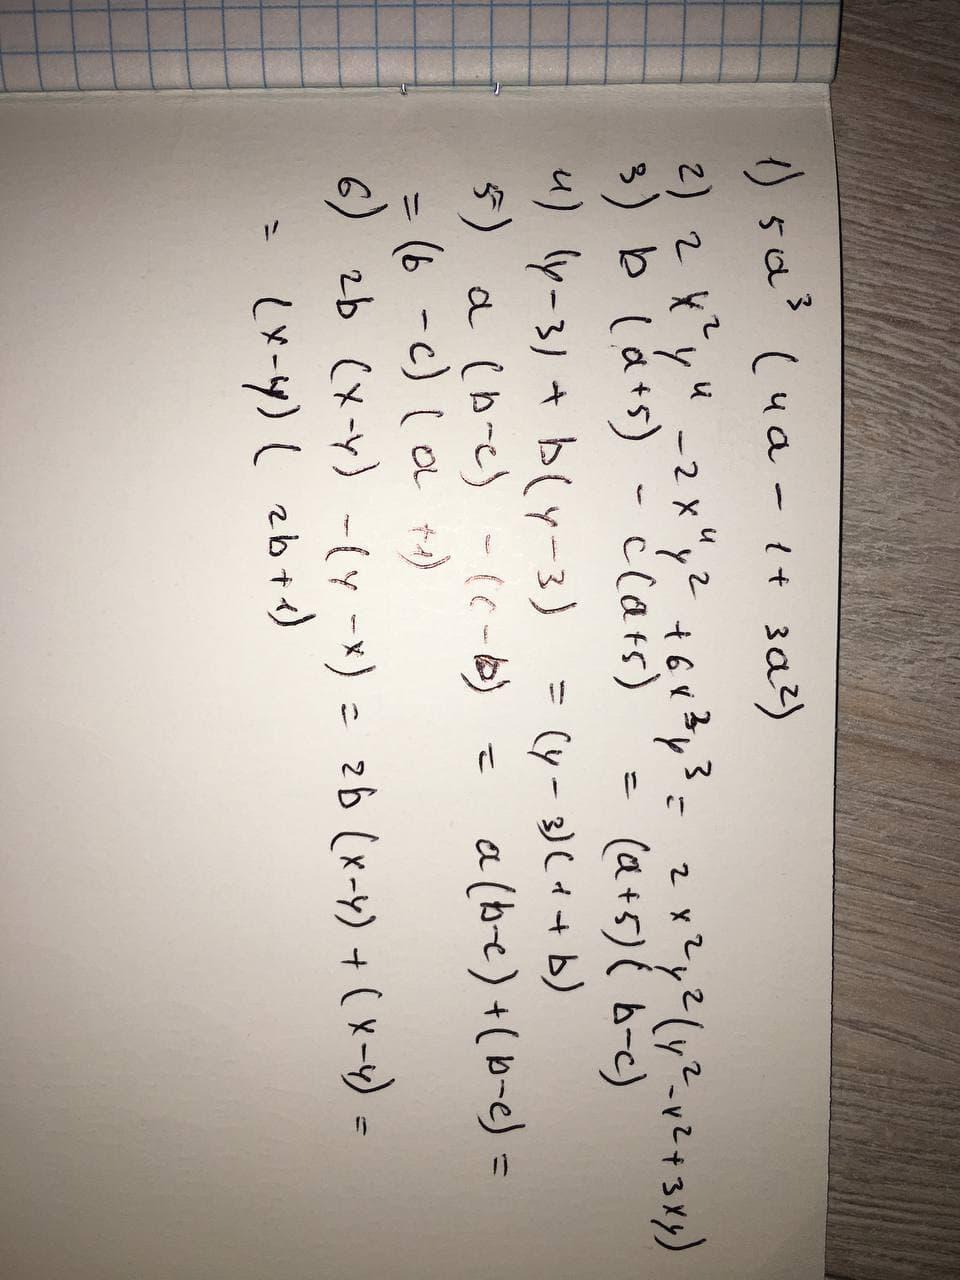 1) 5a³ (4a - 1 + 3a²)
2) 2x²y⁴ - 2x⁴y² + 6x³y³ = 2x²y²(y² - x² + 3xy)
3) b (a+5) - c(a+5) = (a+5)(b-c)
4) (y-3) + b(y-3) = (y-3)(1+b)
5) a (b-c) - (c-b) = a(b-c) + (b-c) =
= (b-c)(a+1)
6) 2b (x-y) - (y-x) = 2b (x-y) + (x-y) =
= (x-y)(2b+1)